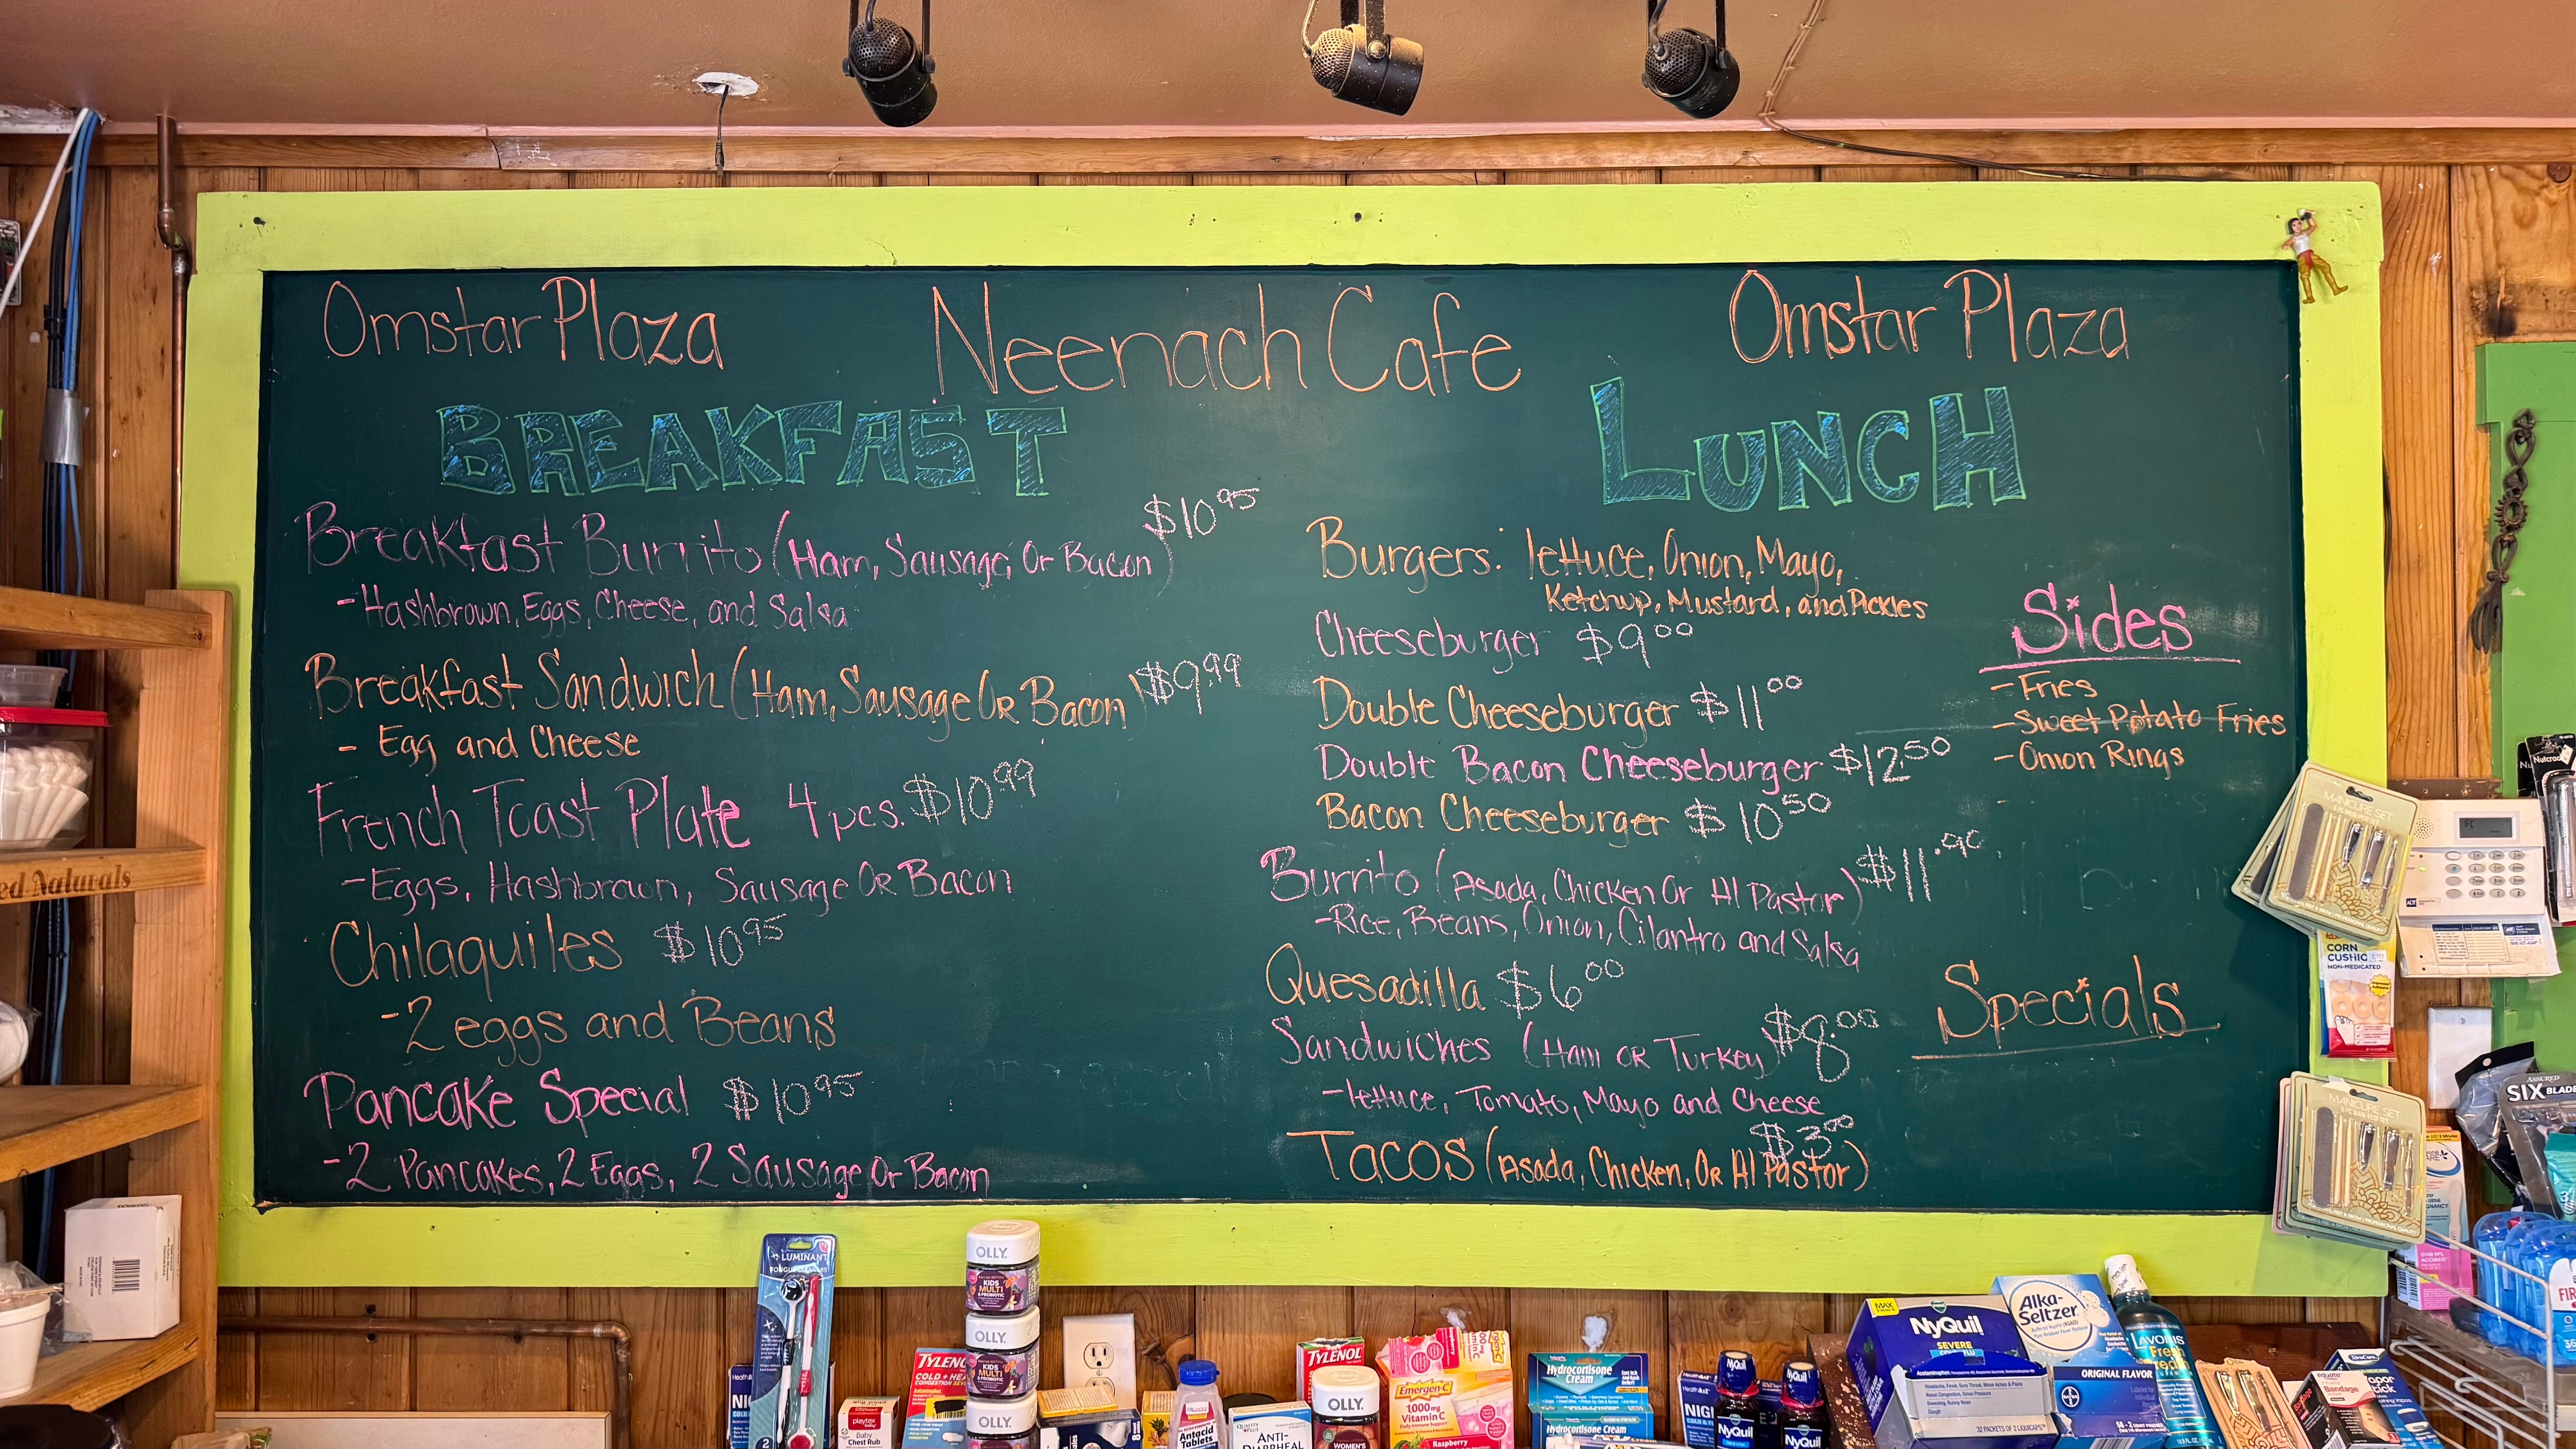 Omstar Plaza
Neenach Cafe
Omstar Plaza
BREAKFAST
Breakfast Burrito (Ham, Sausage, Or Bacon) $10.95
- Hashbrown, Eggs, Cheese, and Salsa
Breakfast Sandwich (Ham, Sausage OR Bacon) $9.99
- Egg and Cheese
French Toast Plate 4 pcs. $10.99
- Eggs, Hashbrown, Sausage OR Bacon
Chilaquiles $10.95
- 2 eggs and Beans
Pancake Special $10.95
- 2 Pancakes, 2 Eggs, 2 Sausage Or Bacon
LUNCH
Burgers: lettuce, Onion, Mayo,
Ketchup, Mustard, and Pickles
Cheeseburger $9.00
Double Cheeseburger $11.00
Double Bacon Cheeseburger $12.50
Bacon Cheeseburger $10.50
Burrito (Asada, Chicken Or Al Pastor)
- Rice, Beans, Onion, Cilantro and Salsa
Quesadilla $6.00
Sandwiches (Ham OR Turkey) $8.00
- lettuce, Tomato, Mayo and Cheese
$3.00
TACOS (Asada, Chicken, OR Al Pastor)
Sides
- Fries
- Sweet Potato Fries
- Onion Rings
Specials
ed Naturals
MANICURE SET
CORN
CUSHIO
NON-MEDICATED
MANICURE SET
ASSURED
SIX BLAD
LUMINANT
OLLY.
KIDS
MULTI
OLLY.
KIDS
MULTI
OLLY.
TYLENOL
COLD + HE
playtex
Baby
Chest Rub
Antacid
Tablets
ANTI-
DIARRHEAL
TYLENOL
OLLY.
WOMEN'S
Emergen-C
1000mg
Vitamin C
Raspberry
Hydrocortisone
Cream
Hydrocortisone Cream
NyQuil
NyQuil
MAX
NyQuil
SEVERE
Alka-
Seltzer
ORIGINAL FLAVOR
LAVORIS
Fresh
equate
Bandage
FIR